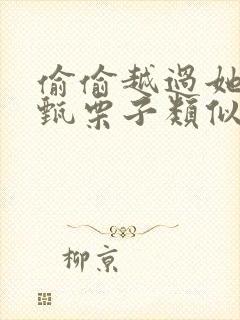 偷偷越過她
甄栗子類似
柳京